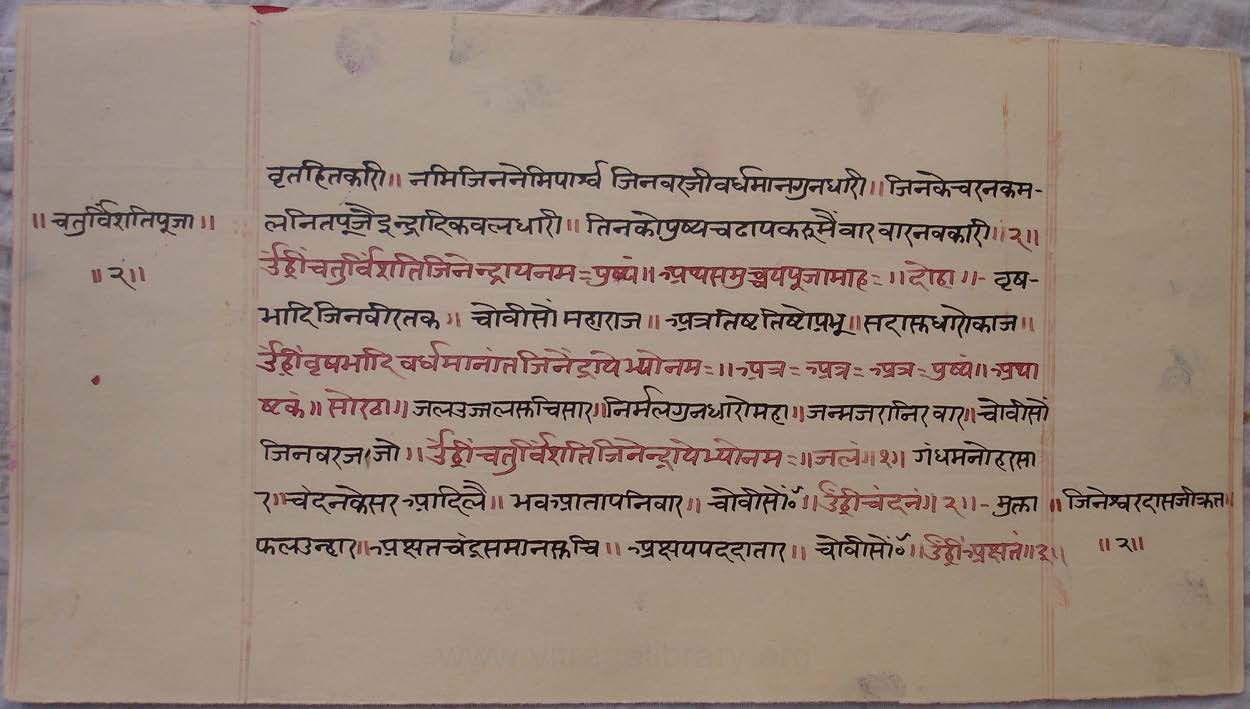 ॥ चतुर्विंशतिपूजा ॥
॥ २ ॥
वृतहितकारी ॥ नमिजिननेमिपार्श्व जिनवरजीवर्धमानगुनधारी ॥ जिनकेचरनकम-
लनितपूजैइन्द्रादिकवलधारी ॥ तिनकोपुष्पचढापकरूमैंवारवारनवकारी ॥ २ ॥
उँह्रींचतुर्विंशतिजिनेन्द्रायनमः पुष्पं ॥ अथसमुच्चयपूजामाह ॥ दोहा ॥ वृष-
भादिजिनवीरतक ॥ चोवीसों महाराज ॥ अत्रतिष्टतिष्टोप्रभू ॥ सरासुधारोकाज ॥
उँह्रींवृषभादिवर्धमानांतजिनेंद्रायेभ्योनमः ॥ अत्र अत्र अत्र पुष्पं ॥ अथा
ष्टकं ॥ सोरठा ॥ जलउज्जलसुचिसार ॥ निर्मलगुनधारोमहा ॥ जन्मजरानिरवार ॥ चोवीसों
जिनवरजजो ॥ उँह्रींचतुर्विंशतिजिनेन्द्रायेभ्योनमः ॥ जलं ॥ १ ॥ गंधमनोहरसा
र ॥ चंदनकेसर आदिलै ॥ भवआतापनिवार ॥ चोवीसों॰ ॥ उँह्रींचंदनं ॥ २ ॥ मुक्ता
फलउन्हार ॥ अक्षतचंद्रसमानसुचि ॥ अक्षयपददातार ॥ चोवीसों॰ ॥ उँह्रींअक्षतं ॥ ३ ॥
॥ जिनेश्वरदासजीकृत ॥
॥ २ ॥